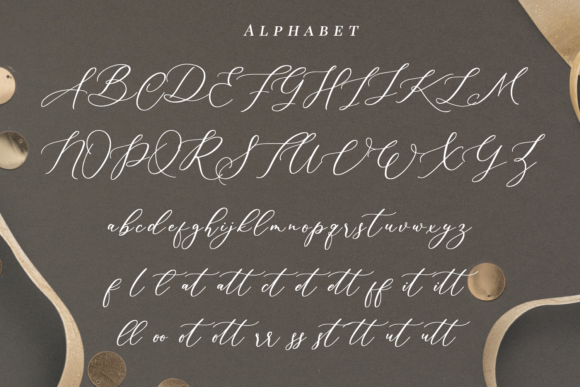 ALPHABET
A B C D E F G H I J K L M
N O P Q R S T U V W X Y Z
abcdefghijklmnopqrstuvwxyz
f l t at att ct et ett ff it itt
ll oo ot ott rr ss st tt ut utt